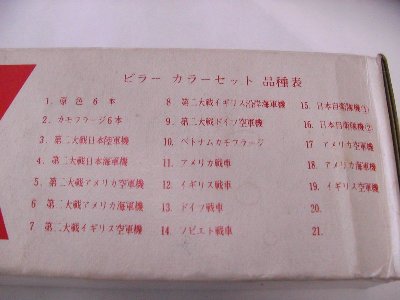 ピラー カラーセット 品種表
1. 原色 6 本
2. カモフラージ 6本
3. 第二大戦日本陸軍機
4. 第二大戦日本海軍機
5. 第二大戦アメリカ空軍機
6 第二大戦アメリカ海軍機
7 第二大戦イギリス空軍機
8 第二大戦イギリス沿岸海軍機
9. 第二大戦ドイツ空軍機
10. ベトナムカモフラージ
11. アメリカ戦車
12. イギリス戦車
13. ドイツ戦車
14. ソビエト戦車
15. 日本自衛隊機(1)
16. 日本自衛隊機(2)
17 アメリカ空軍機
18. アメリカ海軍機
19. イギリス空軍機
20.
21.